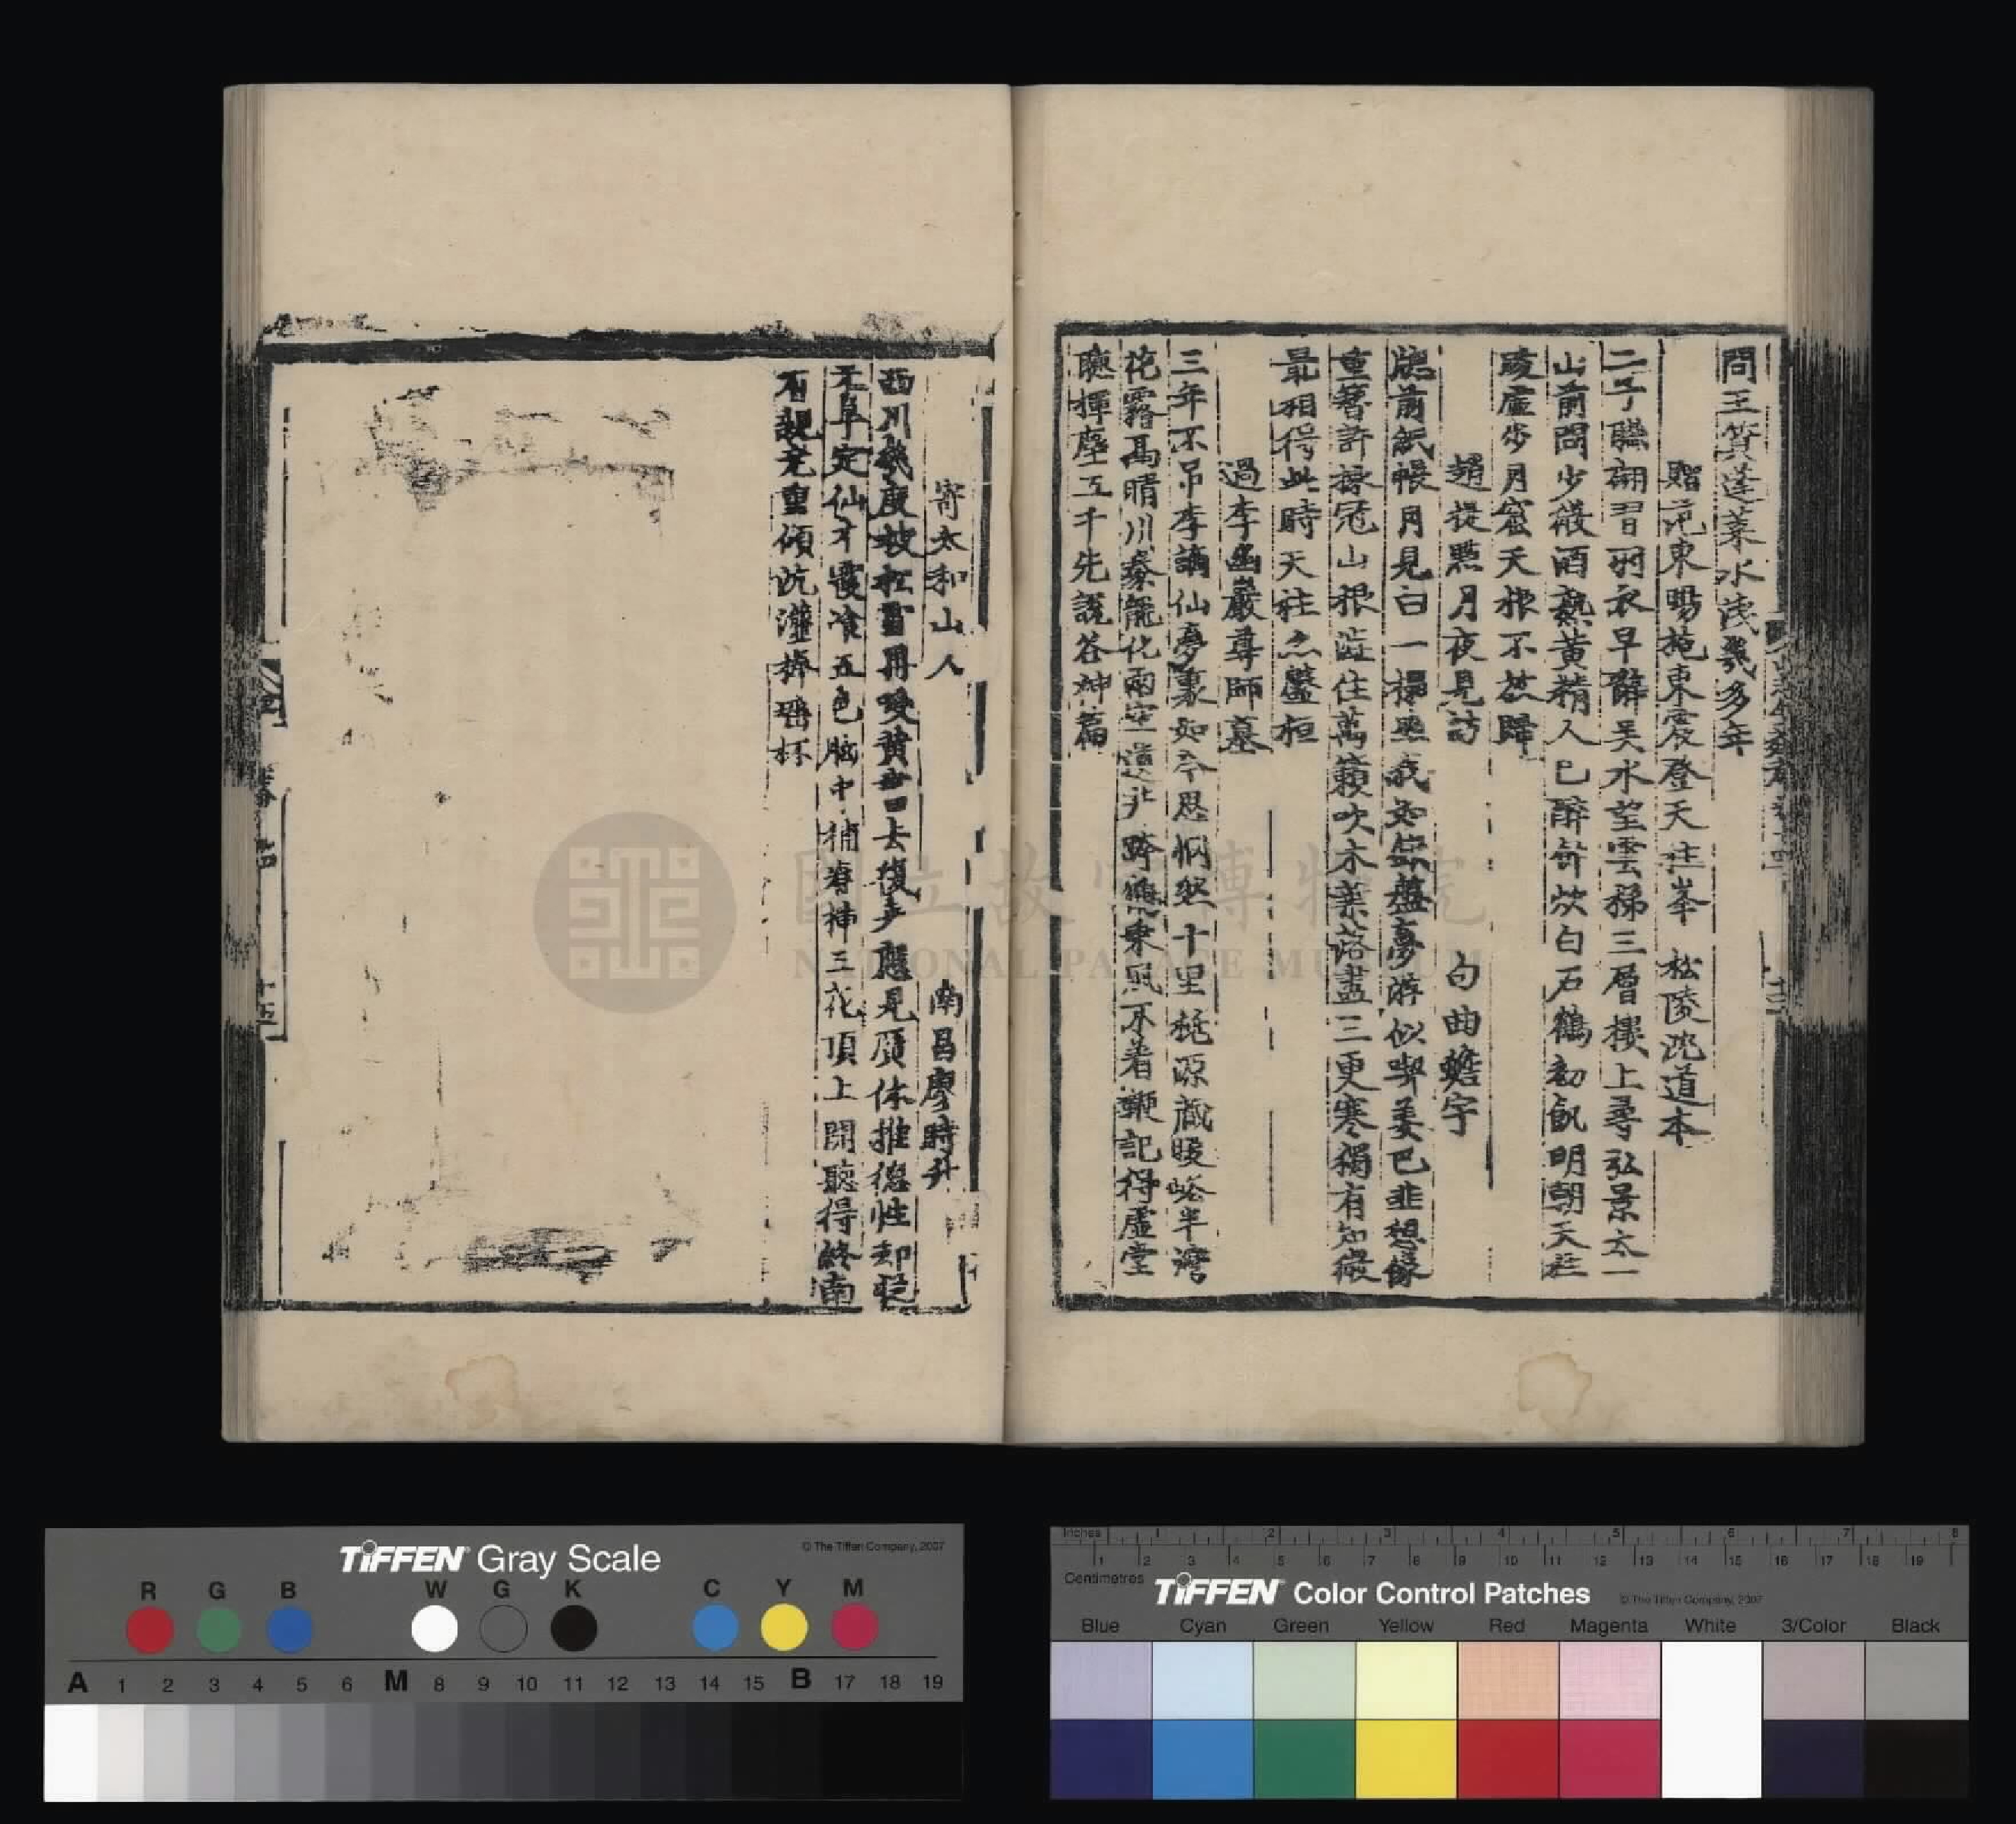 問王簣蓬萊水淺幾多年
贈范東暘施東震登天柱峯 松陵沈道本
二子聯翩習羽衣早辭吴水望雲稊三層樓上尋弘景太一
山前問少微酒熟黄精人已醉斧炊白石鶴初飢明朝天柱
陵虛步月窟天根不放歸
趙提㸃月夜見訪 句曲蟾宇
牕前紙帳月見白一榻無我如盤夢游似喫姜巴韭想像
重簪許掾冠山根澁住萬籟吹木葉落盡三更寒獨有知微
最相得此時天柱盤桓
過李幽巖尊師墓
三年不吊李謫仙夢裏如今思惘然十里桃源藏暖峪半灣
花霧馬晴川秦龍化兩空遺跨鸞乗風不着鞭記得虛堂
聴揮麈五千先說谷神篇
寄太和山人 南昌廖時升
西川幾度披松雪再受黄去復應見廣休推德性却從
阜定仙才霞飡五色腦中補海神三花頂上開聽得終南
石親充重傾沆瀣捧瑶杯
國立故宮博物院
NATIONAL PALACE MUSEUM
TIFFEN Gray Scale
© The Tiffen Company, 2007
R G B W G K C Y M
A 1 2 3 4 5 6 M 8 9 10 11 12 13 14 15 B 17 18 19
Inches 1 2 3 4 5 6 7 8
1 2 3 4 5 6 7 8 9 10 11 12 13 14 15 16 17 18 19
Centimetres
TIFFEN Color Control Patches
© The Tiffen Company, 2007
Blue Cyan Green Yellow Red Magenta White 3/Color Black